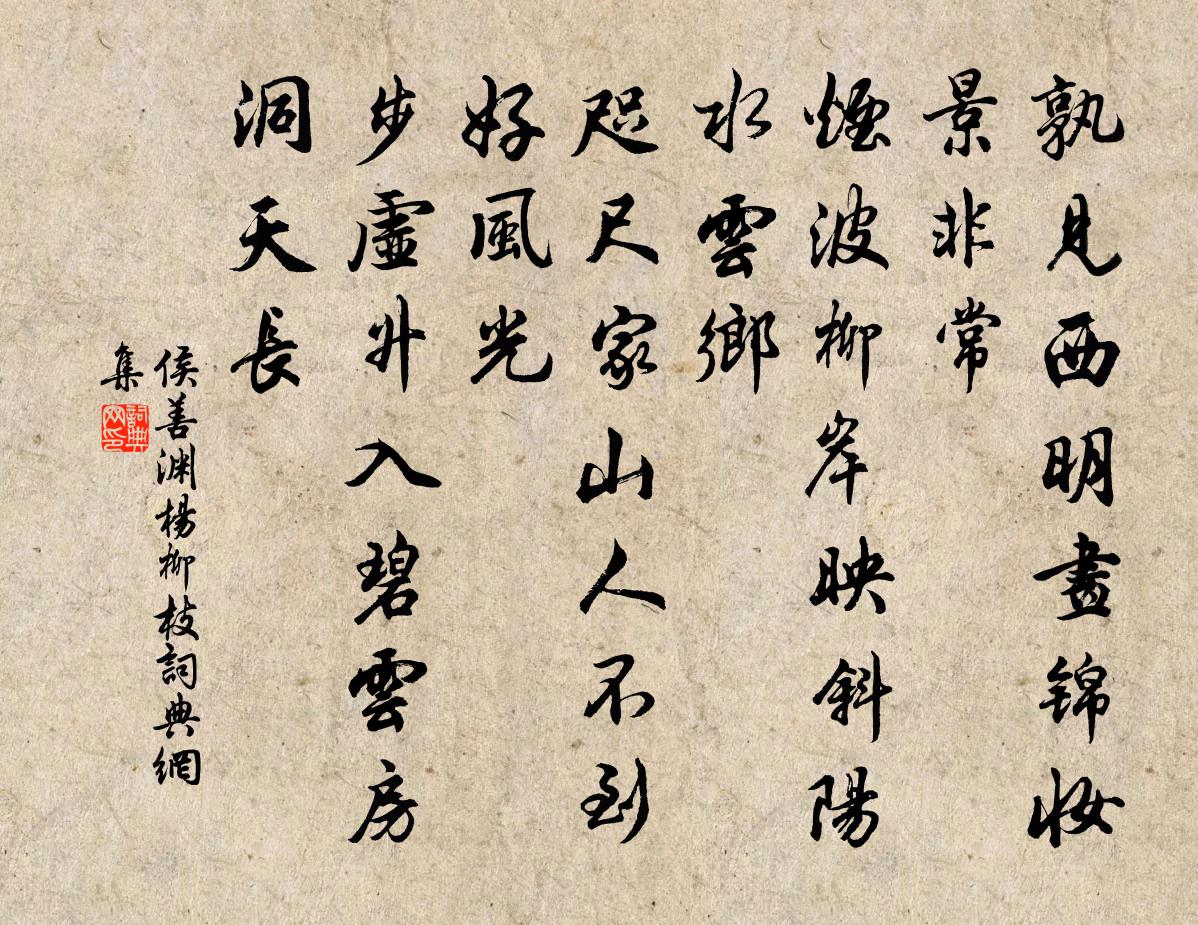 孰見西明畫錦妝
景非常
煙波柳岸映斜陽
水雲鄉
咫尺家山人不到
好風光
步虛升入碧雲房
洞天長
侯善渊楊柳枝詞典網
集
詞典网印